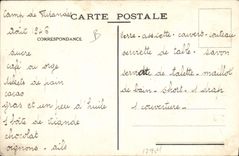 CARTE POSTALE
CORRESPONDANCE
Camp de
Août 1946
sucre
café ou orge
tickets de pain
cacao
gras et un peu d'huile
1 boîte de viande
chocolat
oignons - ails
Verre - assiette - couvert - couteau
serviette de table - savon
serviette de toilette - maillot
de bain - short - 1 drap
1 couverture -